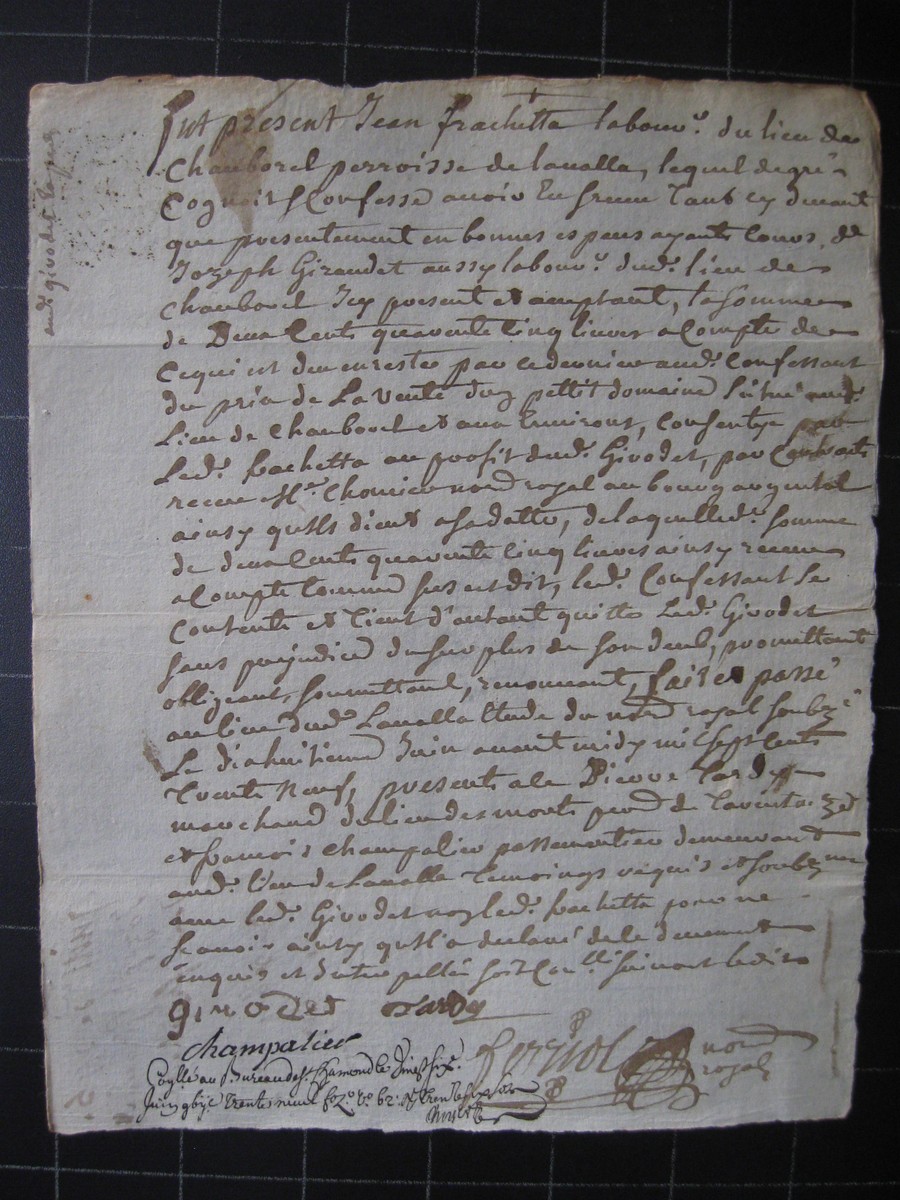 fut present Jean frachetta labour.r du lieu de
Chauborel perroisse de lavalla, lequel de gré
Cognoit & Confesse avoir En sreceu Tant cy devant
que presentement en bonnes especes ayants Cours, de
Jozeph Giraudet aussy labour.r dud.t lieu de
Chauborel Icy present et acceptant, la somme
de Deux Cents quarente Cinq livres a Compte de
Ce qui est deu en reste par ce dernier aud.t Confessant
du prix de La Vente du petit domaine situé aud.t
Lieu de Chauborel et aux Environs, Consentye par
Led.t frachetta au profit dud.t Girodet, par Contract
receu M.e Chomier not.e royal au bourg argental
ainsy qu'ils dient a sa datte, de laquelle d.e somme
de deux Cents quarente Cinq livres ainsy receue
a Compte Comme sus est dit, led.t Confessant se
Contente et Tient d'autant quitte Led.t Girodet
sans prejudice du surplus de son deub, promettant
obligeant, soumettant, renonçant, fait et passé
au lieu dud.t Lavalla Etude du not.e royal soubz.é
Le dixhuitieme Juin avant midy mil sept Cents
Trente Neuf, presents a ce Pierre Tardy
marchand du lieu des monts
et francois Champalier passementier demeurant
aud.t lieu de Lavalla Temoings requis et soubz.nez
avec led.t Girodet non led.t frachetta pour ne
scavoir ainsy qu'il a declaré de le deuement
enquis et Interpellé soit Con.llé suivant ledit
girodet Tardy
Champalier
ferriol not.e
royal
Conllé au Bureau de S.t Chamond le
Juin 
aud.t girodet